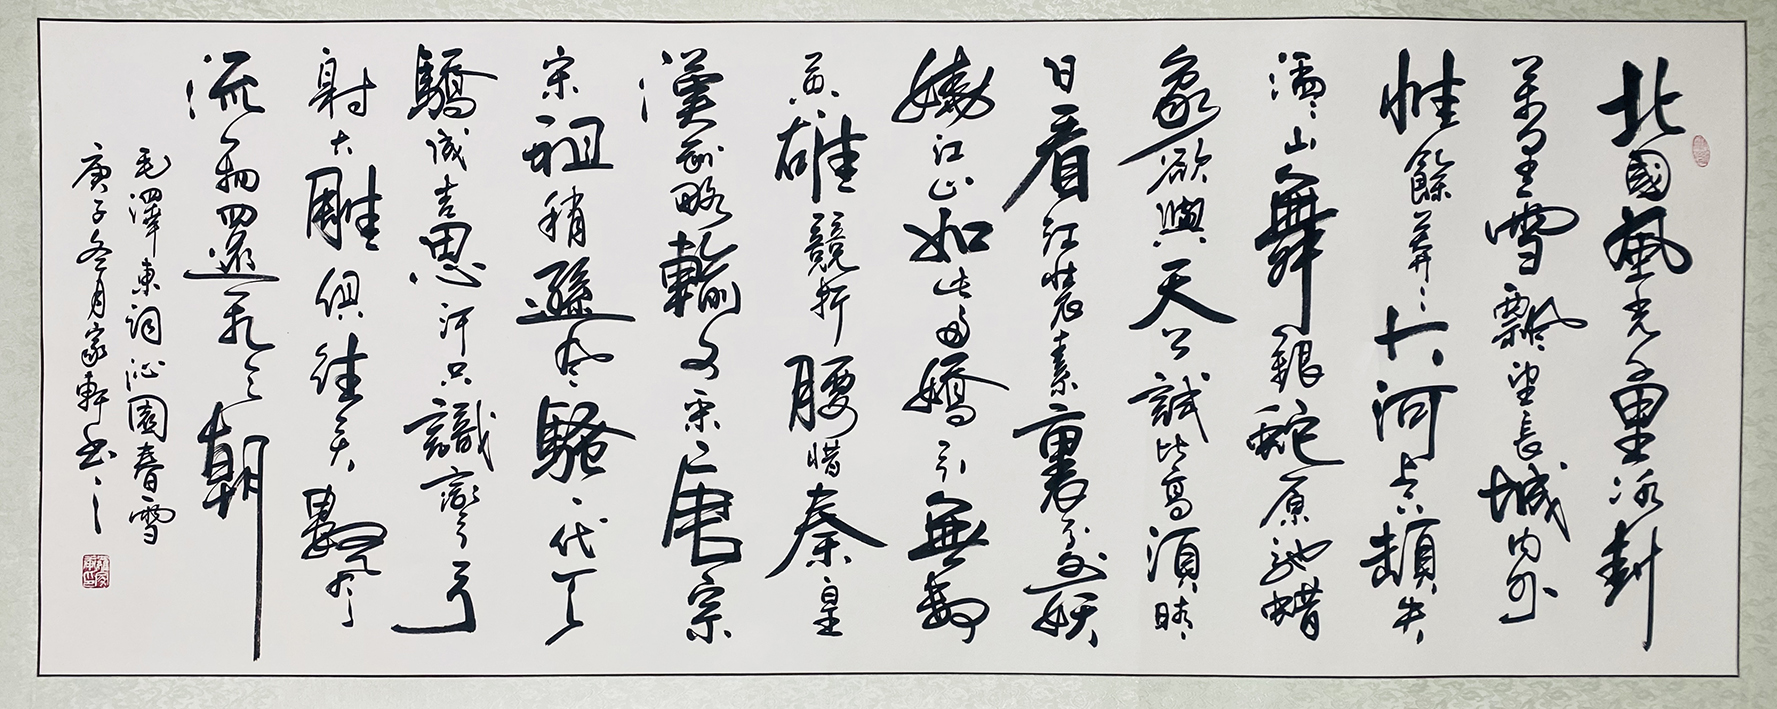 北國風光千里冰封
萬里雪飄望長城內外
惟餘莽々大河上下頓失
滔々山舞銀蛇原馳蠟
象欲與天公試比高須晴
日看紅裝素裹分外妖
嬈江山如此多嬌引無數
英雄競折腰惜秦皇
漢武略輸文采唐宗
宋祖稍遜風騷一代天
驕成吉思汗只識彎弓
射大雕俱往矣數風
流人物還看今朝
毛澤東詞沁園春雪
庚子冬月家軒書之